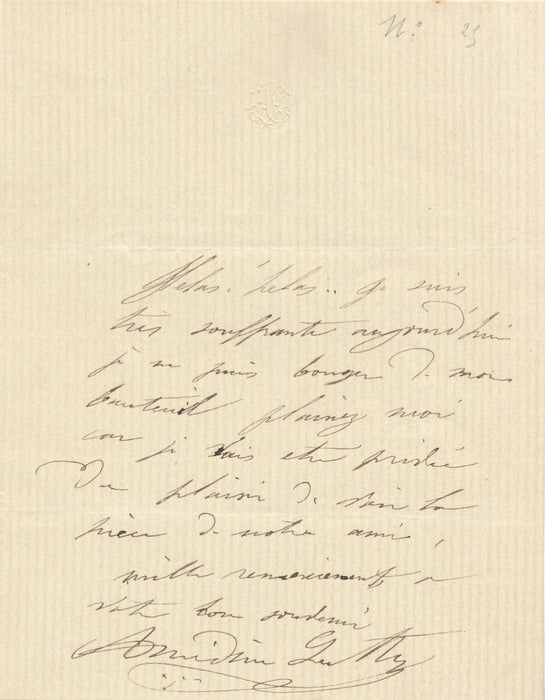 N° 25
Helas! helas.. je suis
très souffrante aujourd'hui
je ne puis bouger de mon
fauteuil plainez moi
car je vais etre privée
du plaisir de voir la
pièce de notre ami,
mille remerciements a
votre bon souvenir